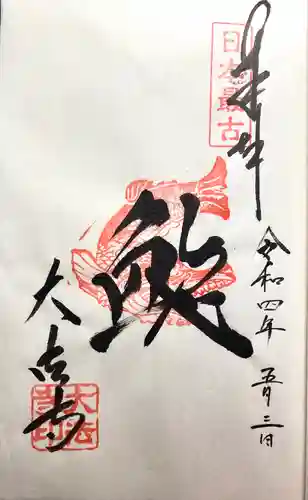 奉拝
日本最古
令和四年
五月三日
大法寺
大法
寺印